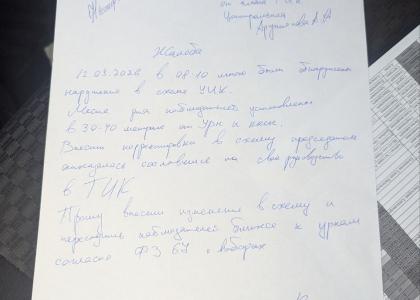 от члена УИК
Центральная
Жалоба
12.03.2026 в 08:10 мною были обнаружены
нарушения в схеме УИК.
Места для наблюдателей установлены
в 30-40 метрах от урн и
Внести корректировки в схему председатель
отказалась сославшись на свое руководство
в ТИК
Прошу внести изменения в схему и
пересадить наблюдателей ближе к урнам
согласно ФЗ 67 о выборах